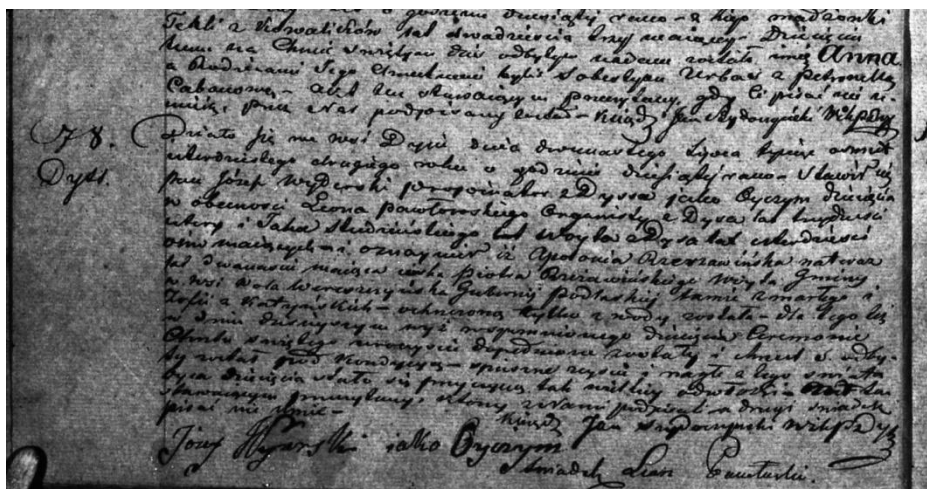 o godzinie dziesiątej rano – z tego małżonki
Tekli z Kowalików lat dwadzieścia trzy mającej. Dziecięciu
temu na Chrzcie Świętym dziś odbytym nadane zostało imię Anna
a Rodzicami Jego Chrzestnemi byli Sobestyan Urban z Petronellą
Cabanową – Akt ten stawającym przeczytany, gdy Ci pisać nie u-
mieją, przez Nas podpisany został – Ksiądz Jan
78.
Dys.
Działo się we wsi Dysie dnia dwunastego Lipca tysiąc osmset
czterdziestego drugiego roku o godzinie dziesiątej rano – Stawił się
pan Józef Wyderski propinator z Dyssa jako Oyczym dziecięcia
w obecności Leona Pawłowskiego Organisty z Dysa lat trzydzieści
cztery i Jana lat Woyta z Dysa lat czterdzieści
ośm mających – i oznaymił iż Apolonia Rzeszawińska
lat dwanaście mająca córka Piotra Rzeszawińskiego Woyta Gminy
z wsi Wola Wereszczyńska Gubernij Podlaskiej tamże zmarłego i
Zofii z – ochrzczona tylko z wody została – dla tego też
w dniu dzisieyszym wyż wspomnionego dziecięcia Ceremonie
Chrztu świętego uroczyście dopełnione zostały i chrzest S. odby-
ty został pod kondycyą – i nagłe z tego świata
dziecięcia stało się przyczyną tak wielkiej odwłoki – Akt ten
stawającym przeczytany, który z Nami podpisał a drugi świadek
pisać nie umie –
Ksiądz Jan
Józef Wyderski jako Oyczym
Świadek Leon Pawłowski.